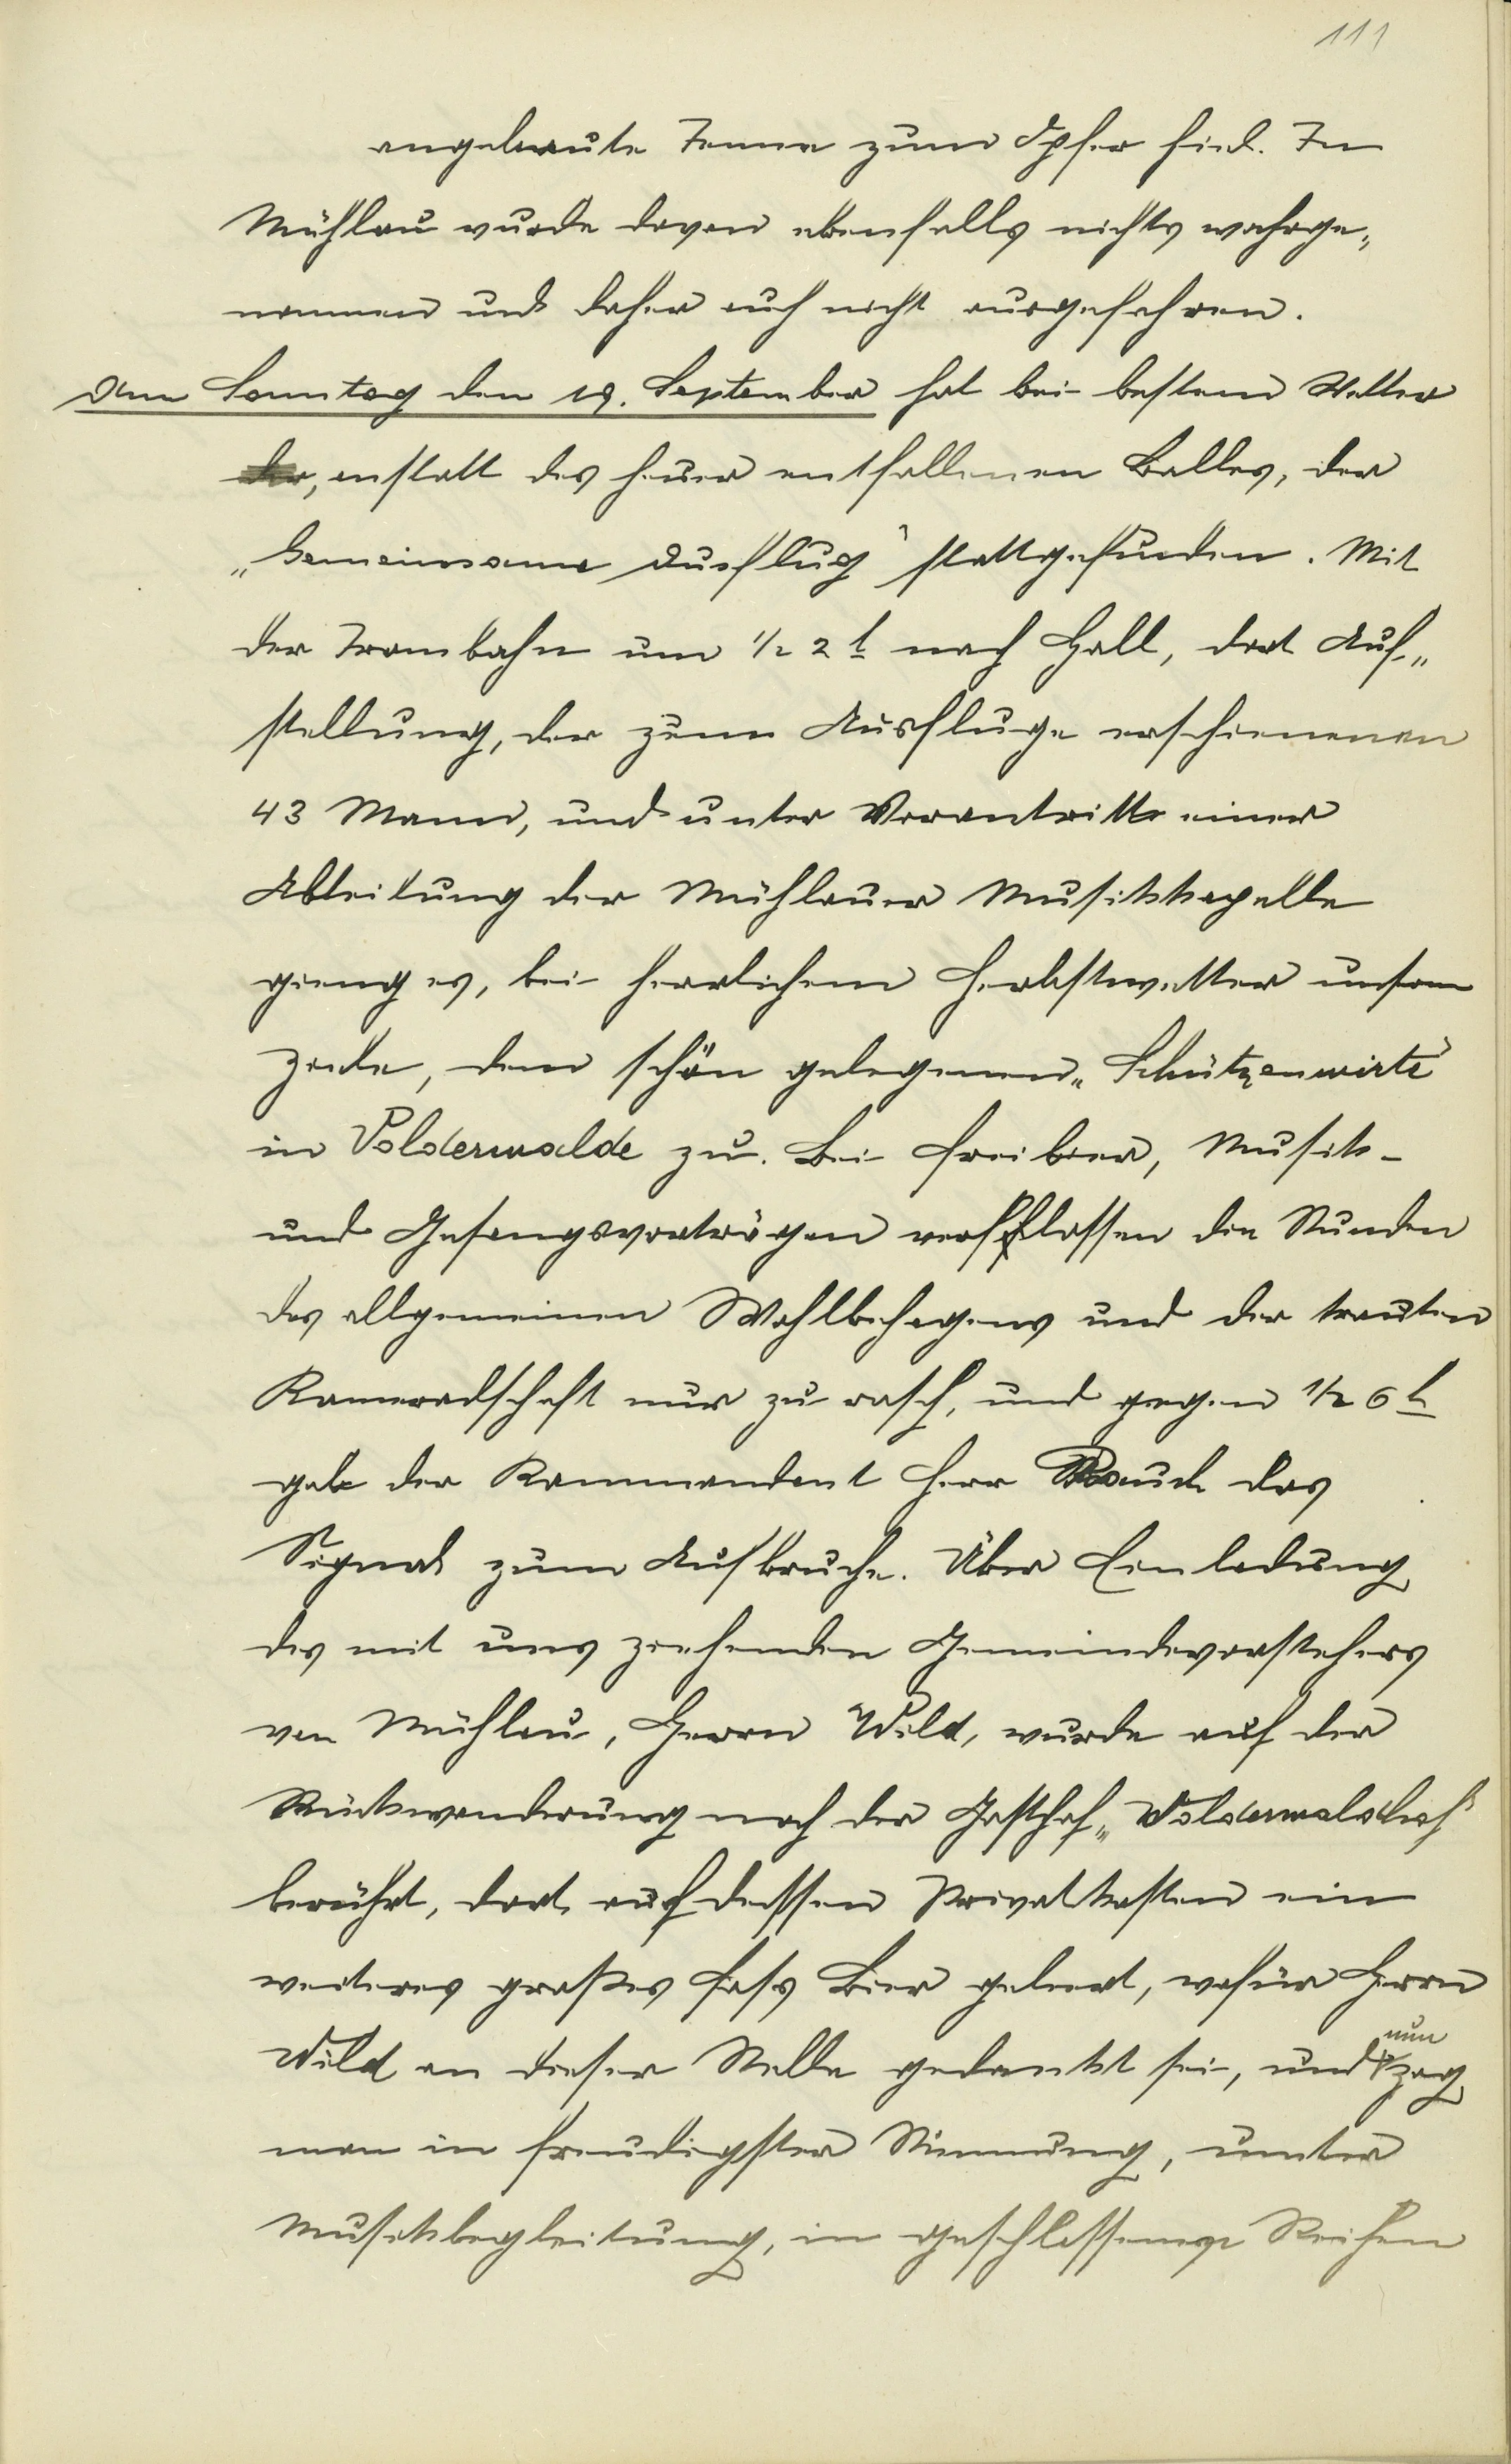 111
angebaute Tenne zum Opfer fiel. In
Mühlau wurde davon ebenfalls nichts wahrge„
nommen und daher auch nicht ausgefahren.
Am Sonntag den 19. September hat bei bestem Wetter
der, anstatt des heuer entfallenen Balles, der
„Gemeinsame Ausflug" stattgefunden. Mit
der Trambahn um 1/2 2 h nach Hall, dort Auf„
stellung, der zum Ausfluge erschienenen
43 Mann, und unter Vorantritte einer
Abteilung der Mühlauer Musikkapelle
gieng es, bei herrlichem Herbstwetter unserm
Ziele, dem schön gelegenen „Schützenwirte"
in Volderwalde zu. Bei Freibier, Musik-
und Gesangsvorträgen verflossen die Stunden
des allgemeinen Wohlbehagens und der trauten
Kameradschaft nur zu rasch, und gegen 1/2 6 h
gab der Kommandant Herr Rauch das
Signal zum Aufbruche. Über Einladung
des mit uns ziehenden Gemeindevorstehers
von Mühlau, Herrn Wild, wurde auf der
Rückwanderung noch der Gasthof „Volderwaldhof"
berührt, dort auf dessen Privatkosten ein
weiteres großes Fass Bier geleert, wofür Herrn
Wild an dieser Stelle gedankt sei, und nun zog
man in freudigster Stimmung, unter
Musikbegleitung, in geschlossener Reihen